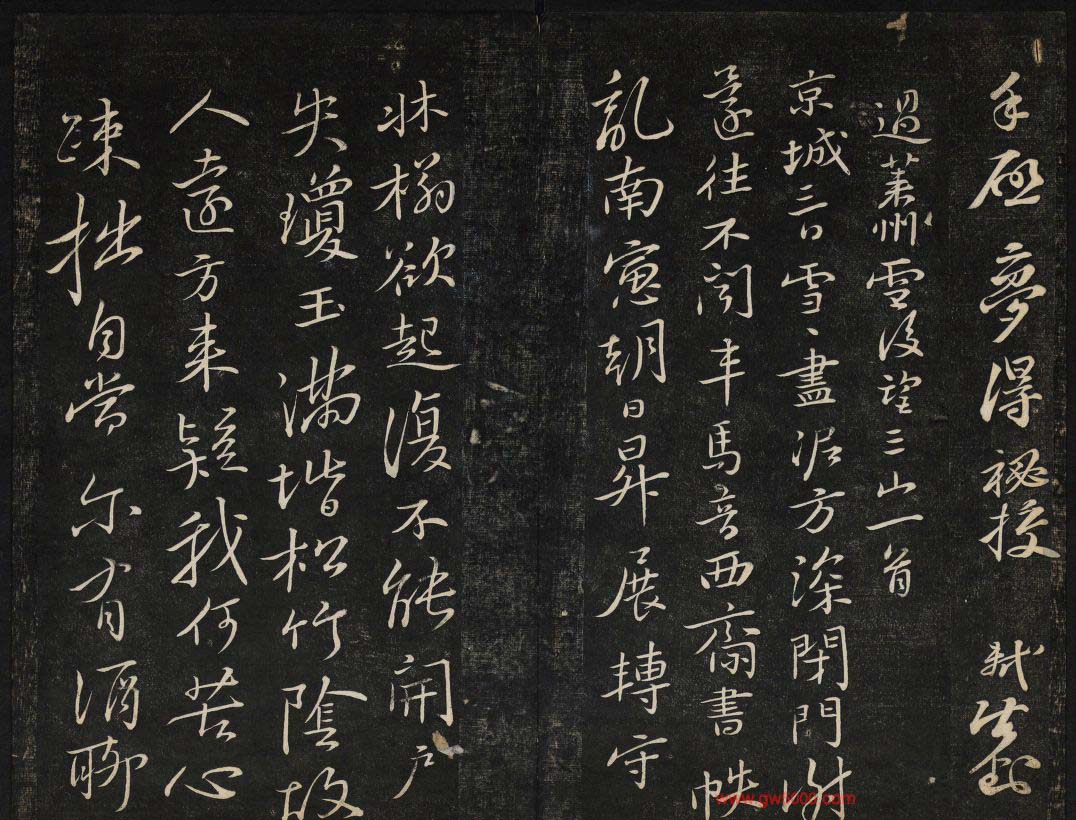 手啟夢得秘校 軾封
過萊州雪後望三山一首
京城三日雪〻盡泥方深閉門謝
還往不聞車馬音西齋書帙
亂南窗朝日昇展轉守
牀榻欲起復不能開户
失瓊玉滿堦松竹陰故
人遠方來疑我何苦心
疎拙自當尔有酒聊